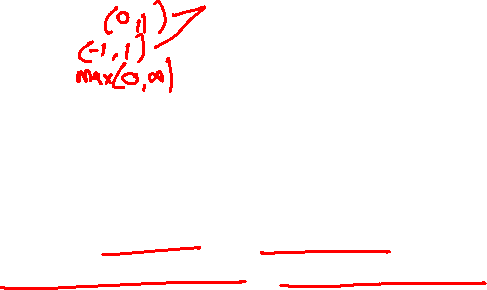 (0,1)
(-1,1)
max(0,∞)